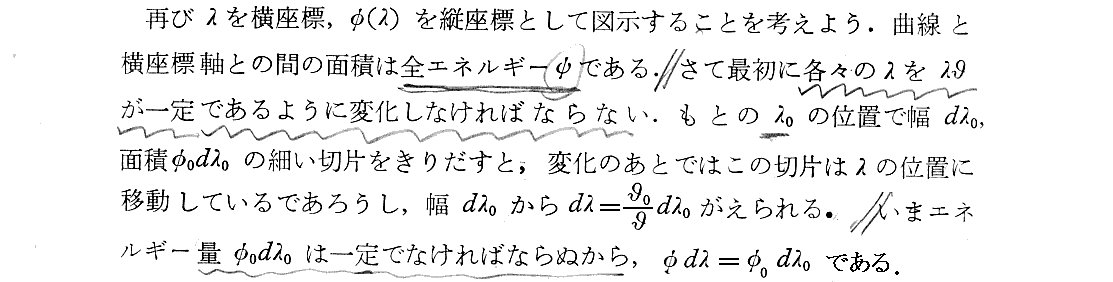 再び λ を横座標，φ(λ) を縦座標として図示することを考えよう．曲線と
横座標軸との間の面積は全エネルギーψである．さて最初に各々の λ を λϑ
が一定であるように変化しなければならない．もとの λ₀ の位置で幅 dλ₀，
面積φ₀dλ₀ の細い切片をきりだすと，変化のあとではこの切片は λ の位置に
移動しているであろうし，幅 dλ₀ から dλ=ϑ₀/ϑ dλ₀ がえられる．いまエネ
ルギー量 φ₀dλ₀ は一定でなければならぬから，φdλ=φ₀ dλ₀ である．